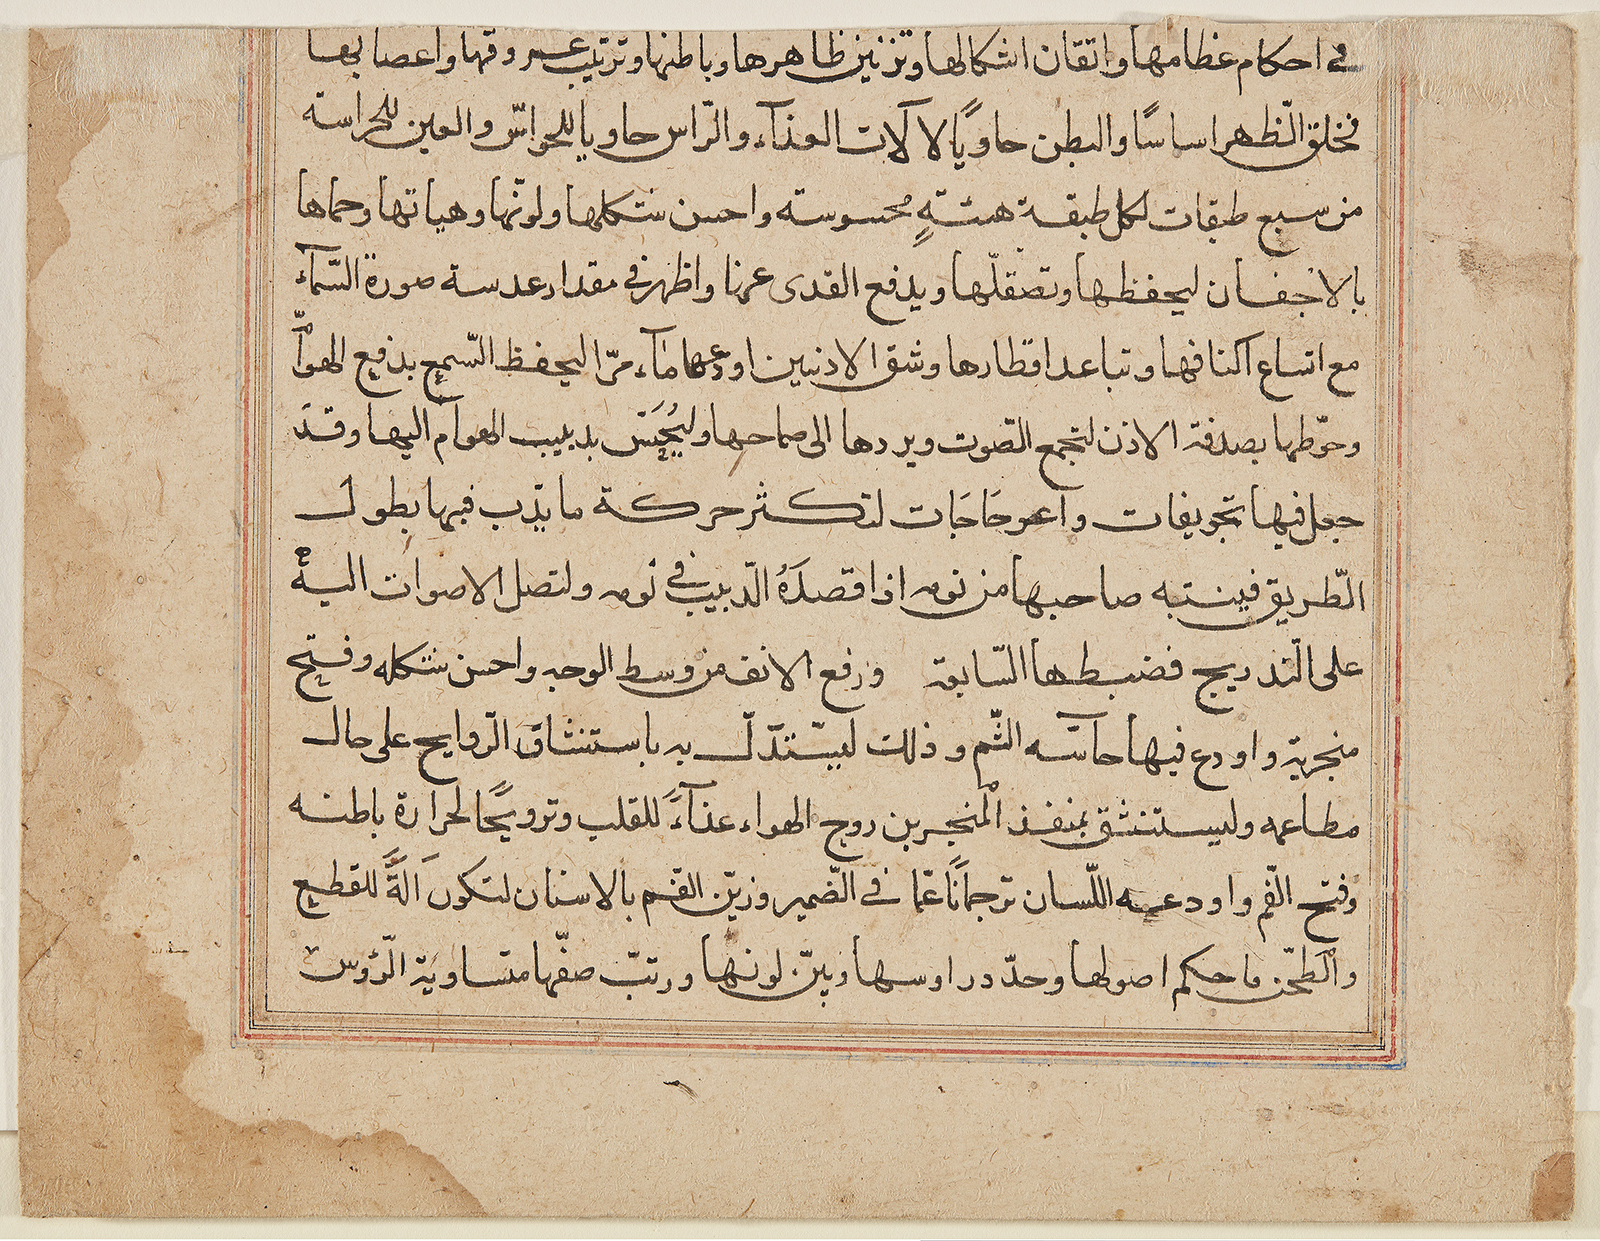 في احكام عظامها واتقان اشكالها وتزيين ظاهرها وباطنها وترتيب عروقها واعصابها
فخلق الّظهر اساسًا والبطن حاويًا لالآت الغذآء والرّاس حاويا للحواسّ والعين للحراسة
من سبع طبقات لكل طبقة هيئةٍ محسوسة واحسن شكلها ولونّها وهياتها وحماها
بالاجفان ليحفظها وتصقلّها ويدفع القدى عنها واظهر في مقدار عدسة صورة السّمآء
مع اتساع اكنافها وتباعد اقطارها وشق الاذنين اودعها مآء مرّا ليحفظ السّمع بدفع الهوآمّ
وحوّطها بصدفة الاذن لتجمع الصّوت ويردها الى صماحها وليُحِسَّ بدبيب الهوام اليها وقدَ
جعل فيها تجويفات واعوجَاجَات لتكثر حركة ما يدّب فيها بطول
الطّريق فينتبه صاحبها من نومه اذا قصدَهُ الّدبيب في نومه ولتصل الاصوات اليه
على الّتدريج فضبطها السّابقة ورفع الانف من وسط الوجه واحسن شكله وفتح
منجرية واودع فيها حآسّه الشّم وذلك ليستدّلّ به باستنشاق الرّوايح على حال
مطاعمه وليستنشق بمنفذ المنجرين روح الهواء غذآءً للقلب وترويحًا لحرارة باطنه
وفتح الفّم واودعه اللّسان ترجمانًا عمّا في الضّمير وزيّن الفم بالاسنان لتكون آلةً للقطع
والطّحن فاحكم اصولها وحدّد راوسها وبيّن لونها ورتبّ صفّها متساوية الرّؤس